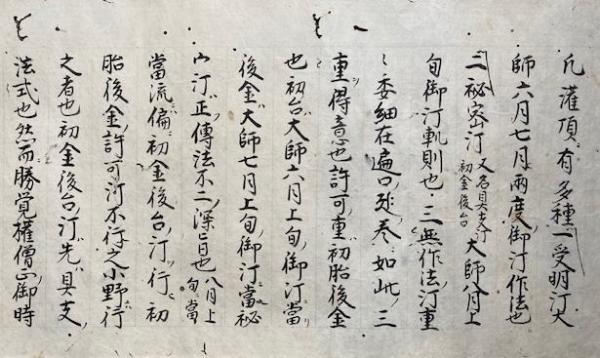 凡灌頂有多種一受明汀大
師六月七月兩度御汀作法也
二祕密汀又名具支汀初金後台大師八月上
旬御汀軌則也三無作法汀重
〻委細在遍口延巻如此三
重得意也許可重初胎後金
也初台大師六月上旬御汀當
後金大師七月上旬御汀當祕
宀汀正傳法不二深旨也八月上旬當
當流偏初金後台汀行初
胎後金許可汀不行之小野行
之者也初金後台汀先具支
法式也然而勝覚權僧正御時